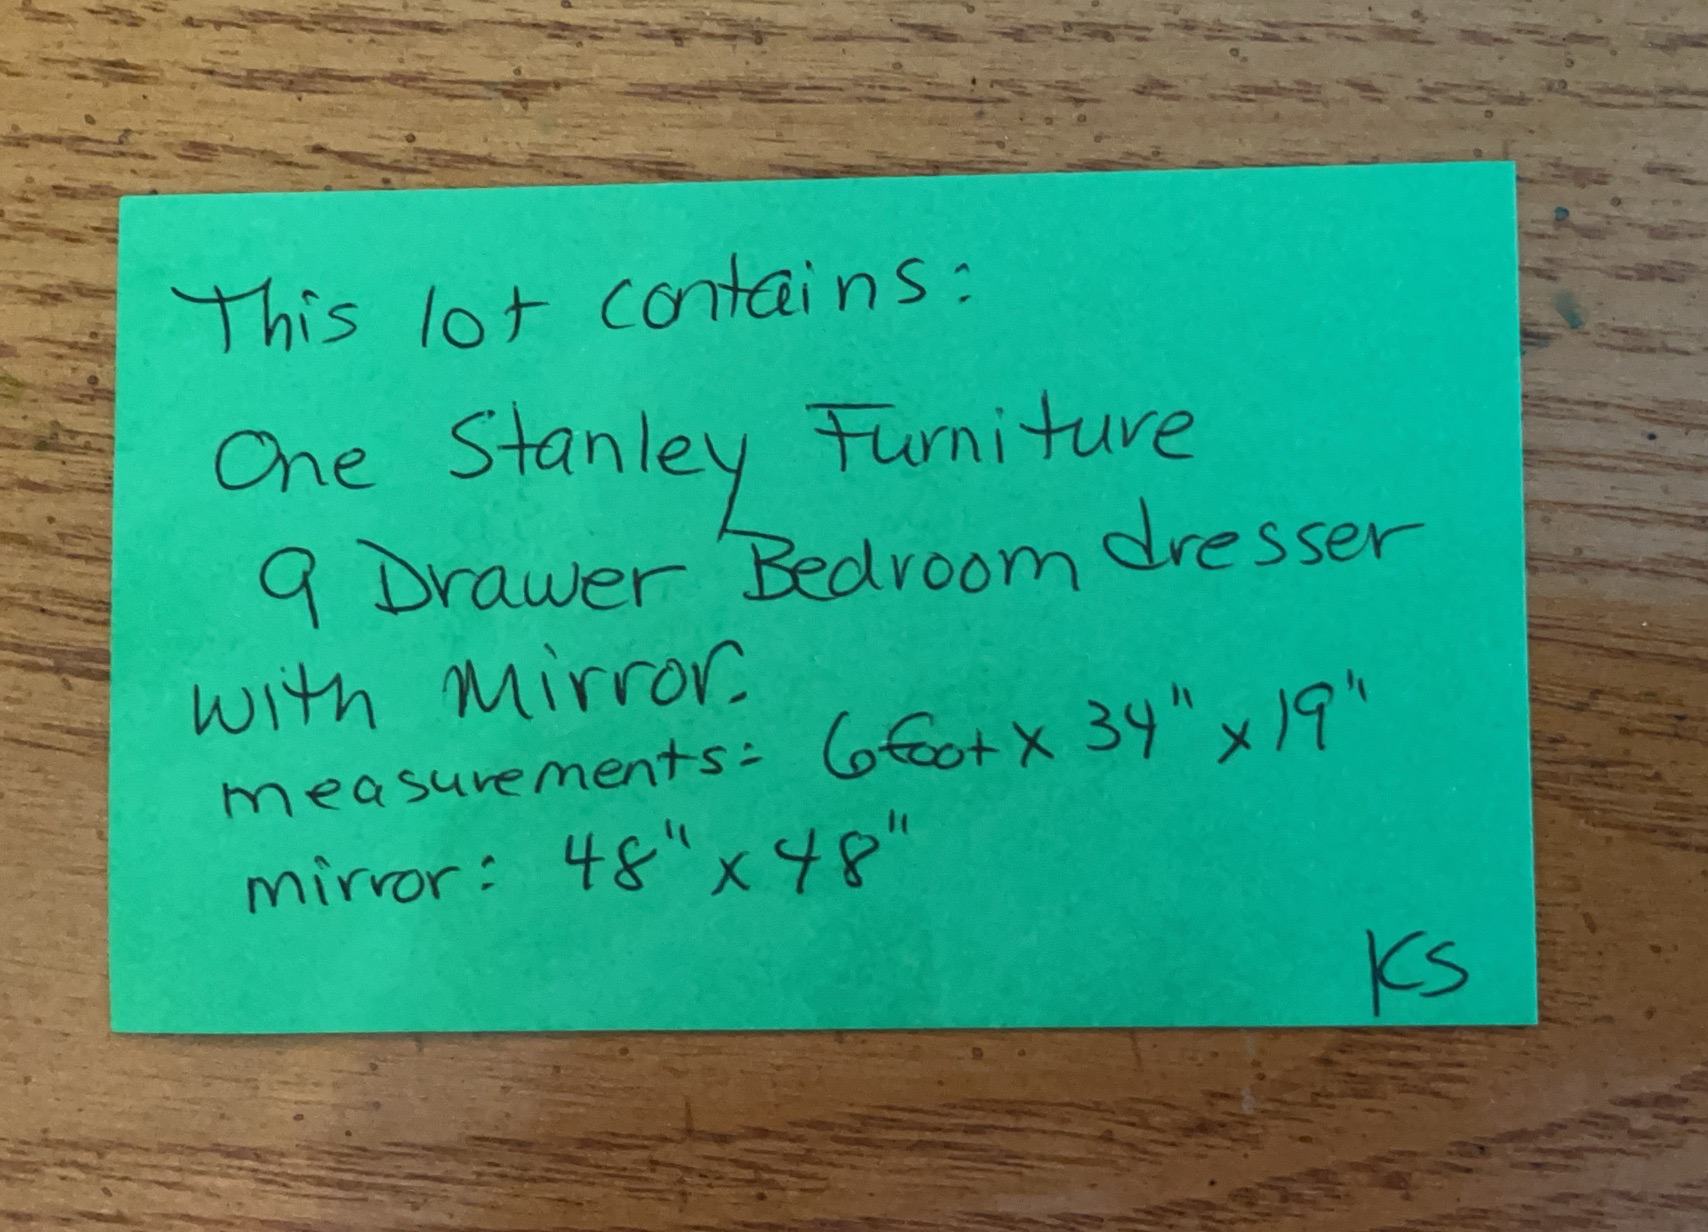 This lot contains:
One Stanley Furniture
9 Drawer Bedroom dresser
with Mirror.
measurements: 6 foot x 34" x 19"
mirror: 48" x 48"
KS